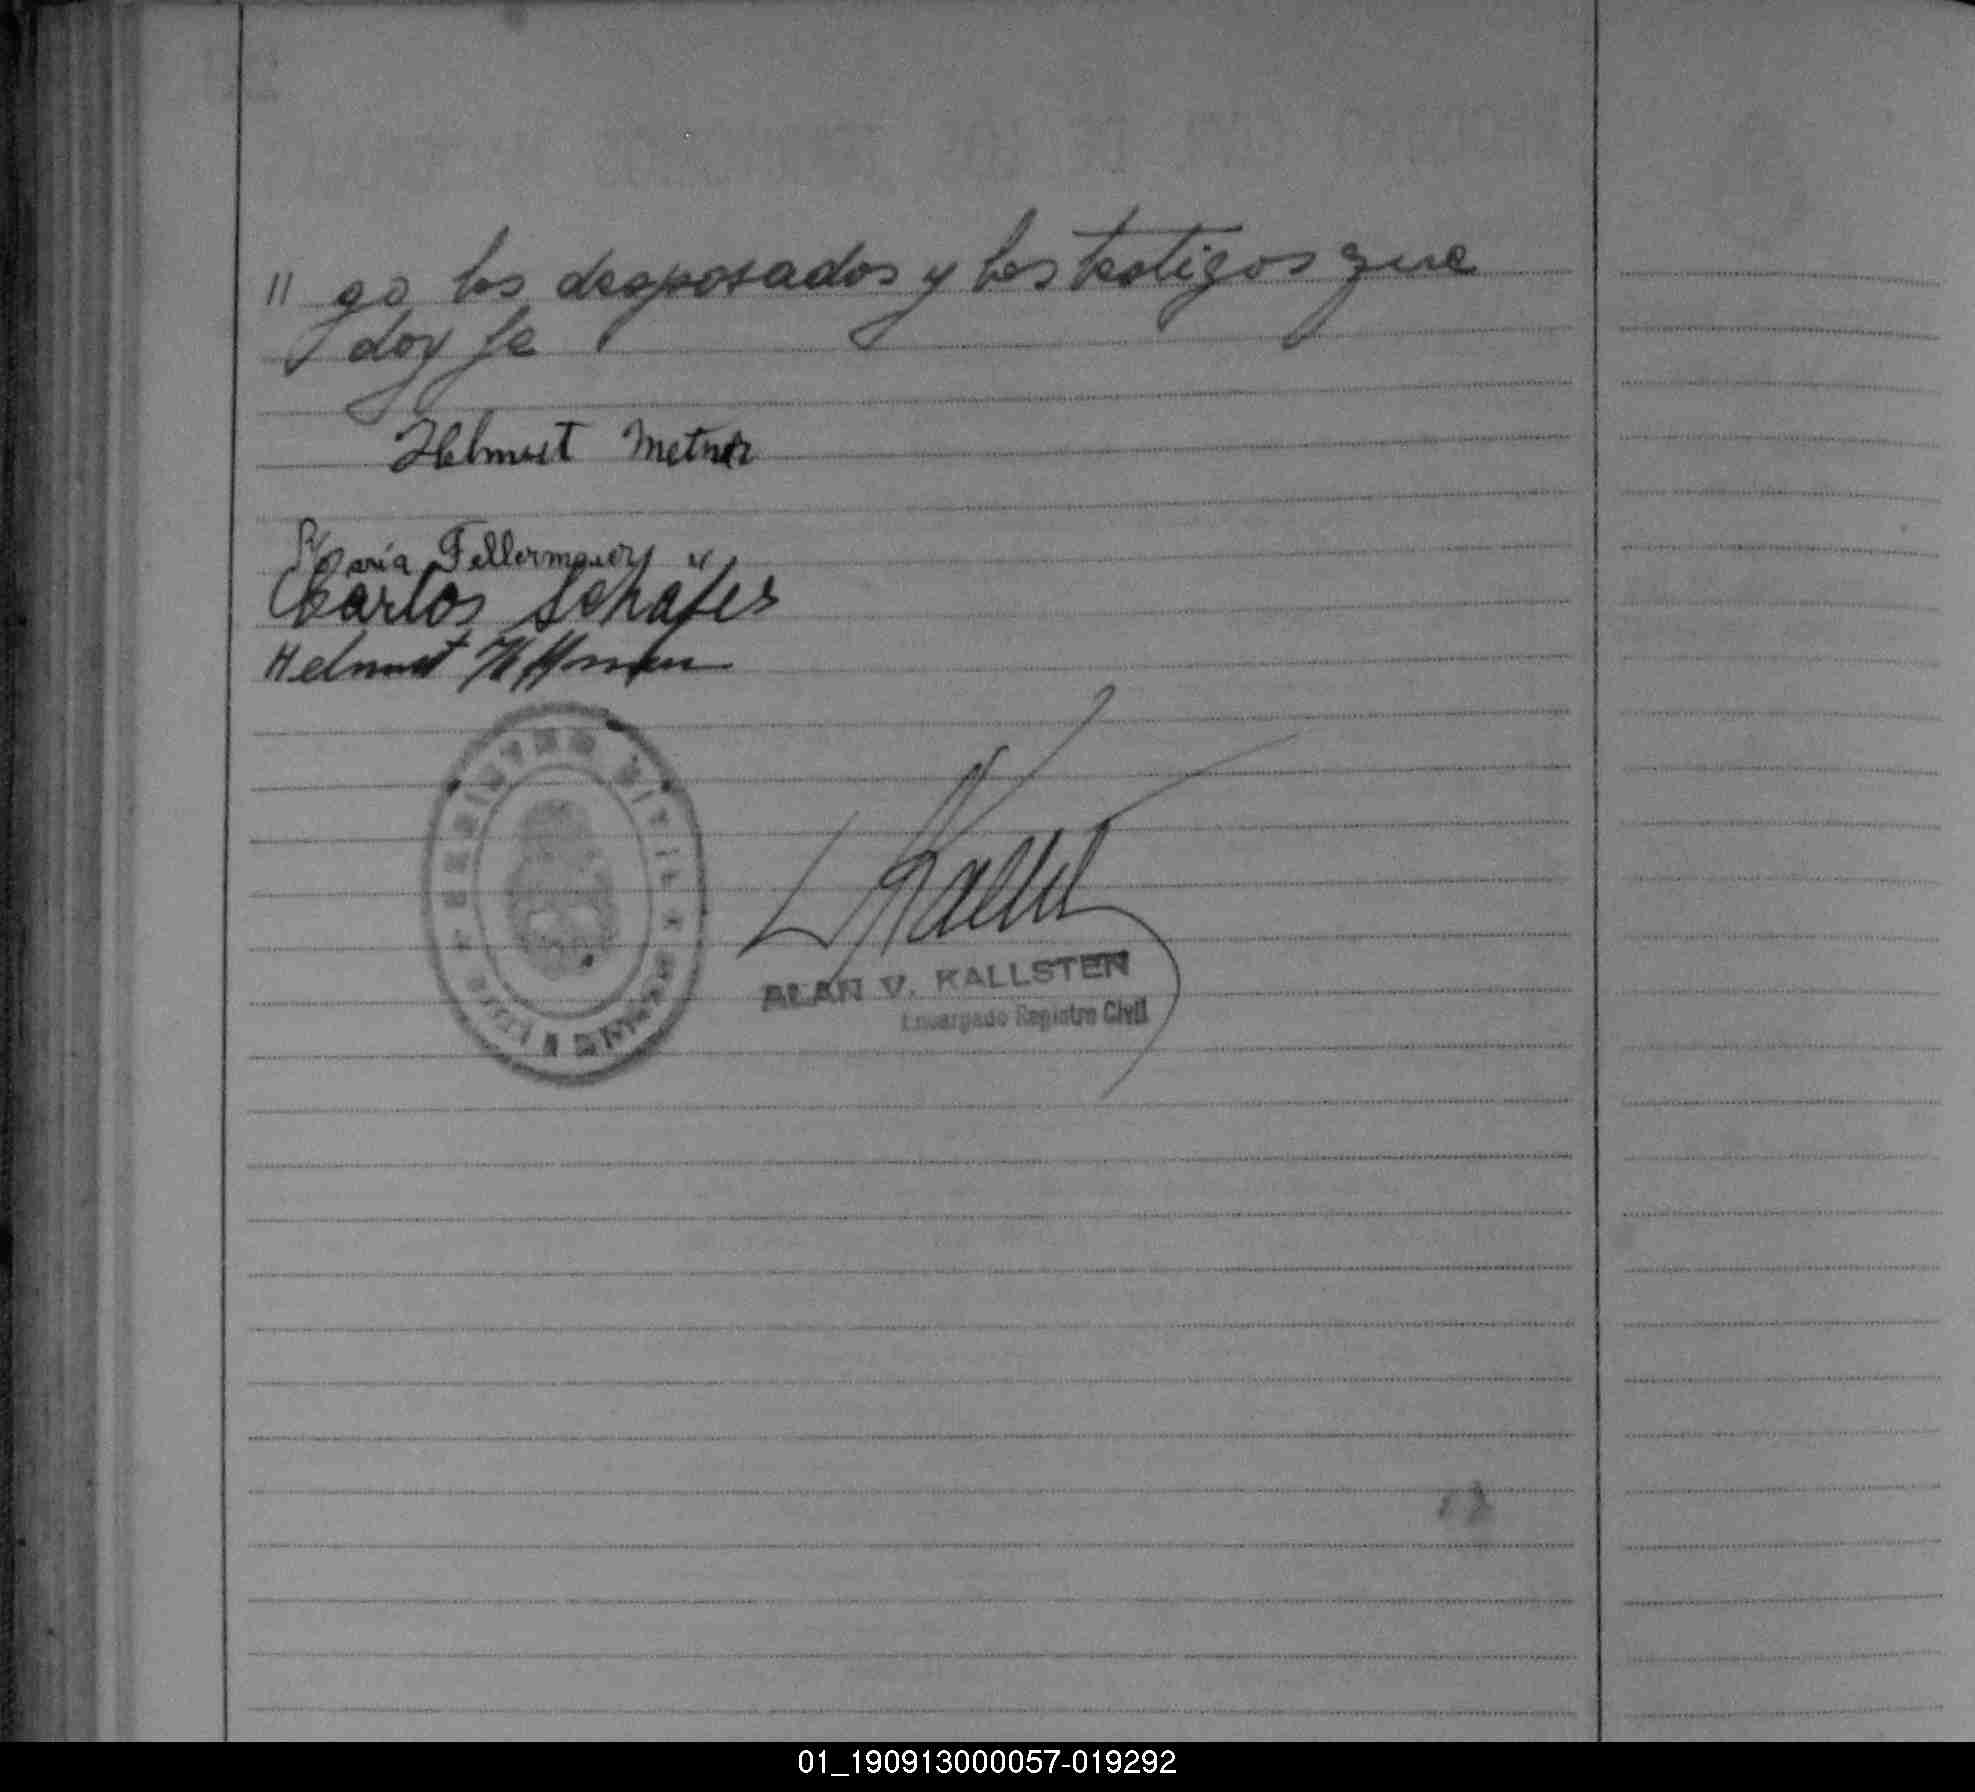 " go los desposados y los testigos que
doy fe
Helmut Metner
Maria Fellermaier
Carlos Schäfer
Helmut Hoffmann
REGISTRO CIVIL
ALAN V. KALLSTEN
Encargado Registro Civil
01_190913000057-019292